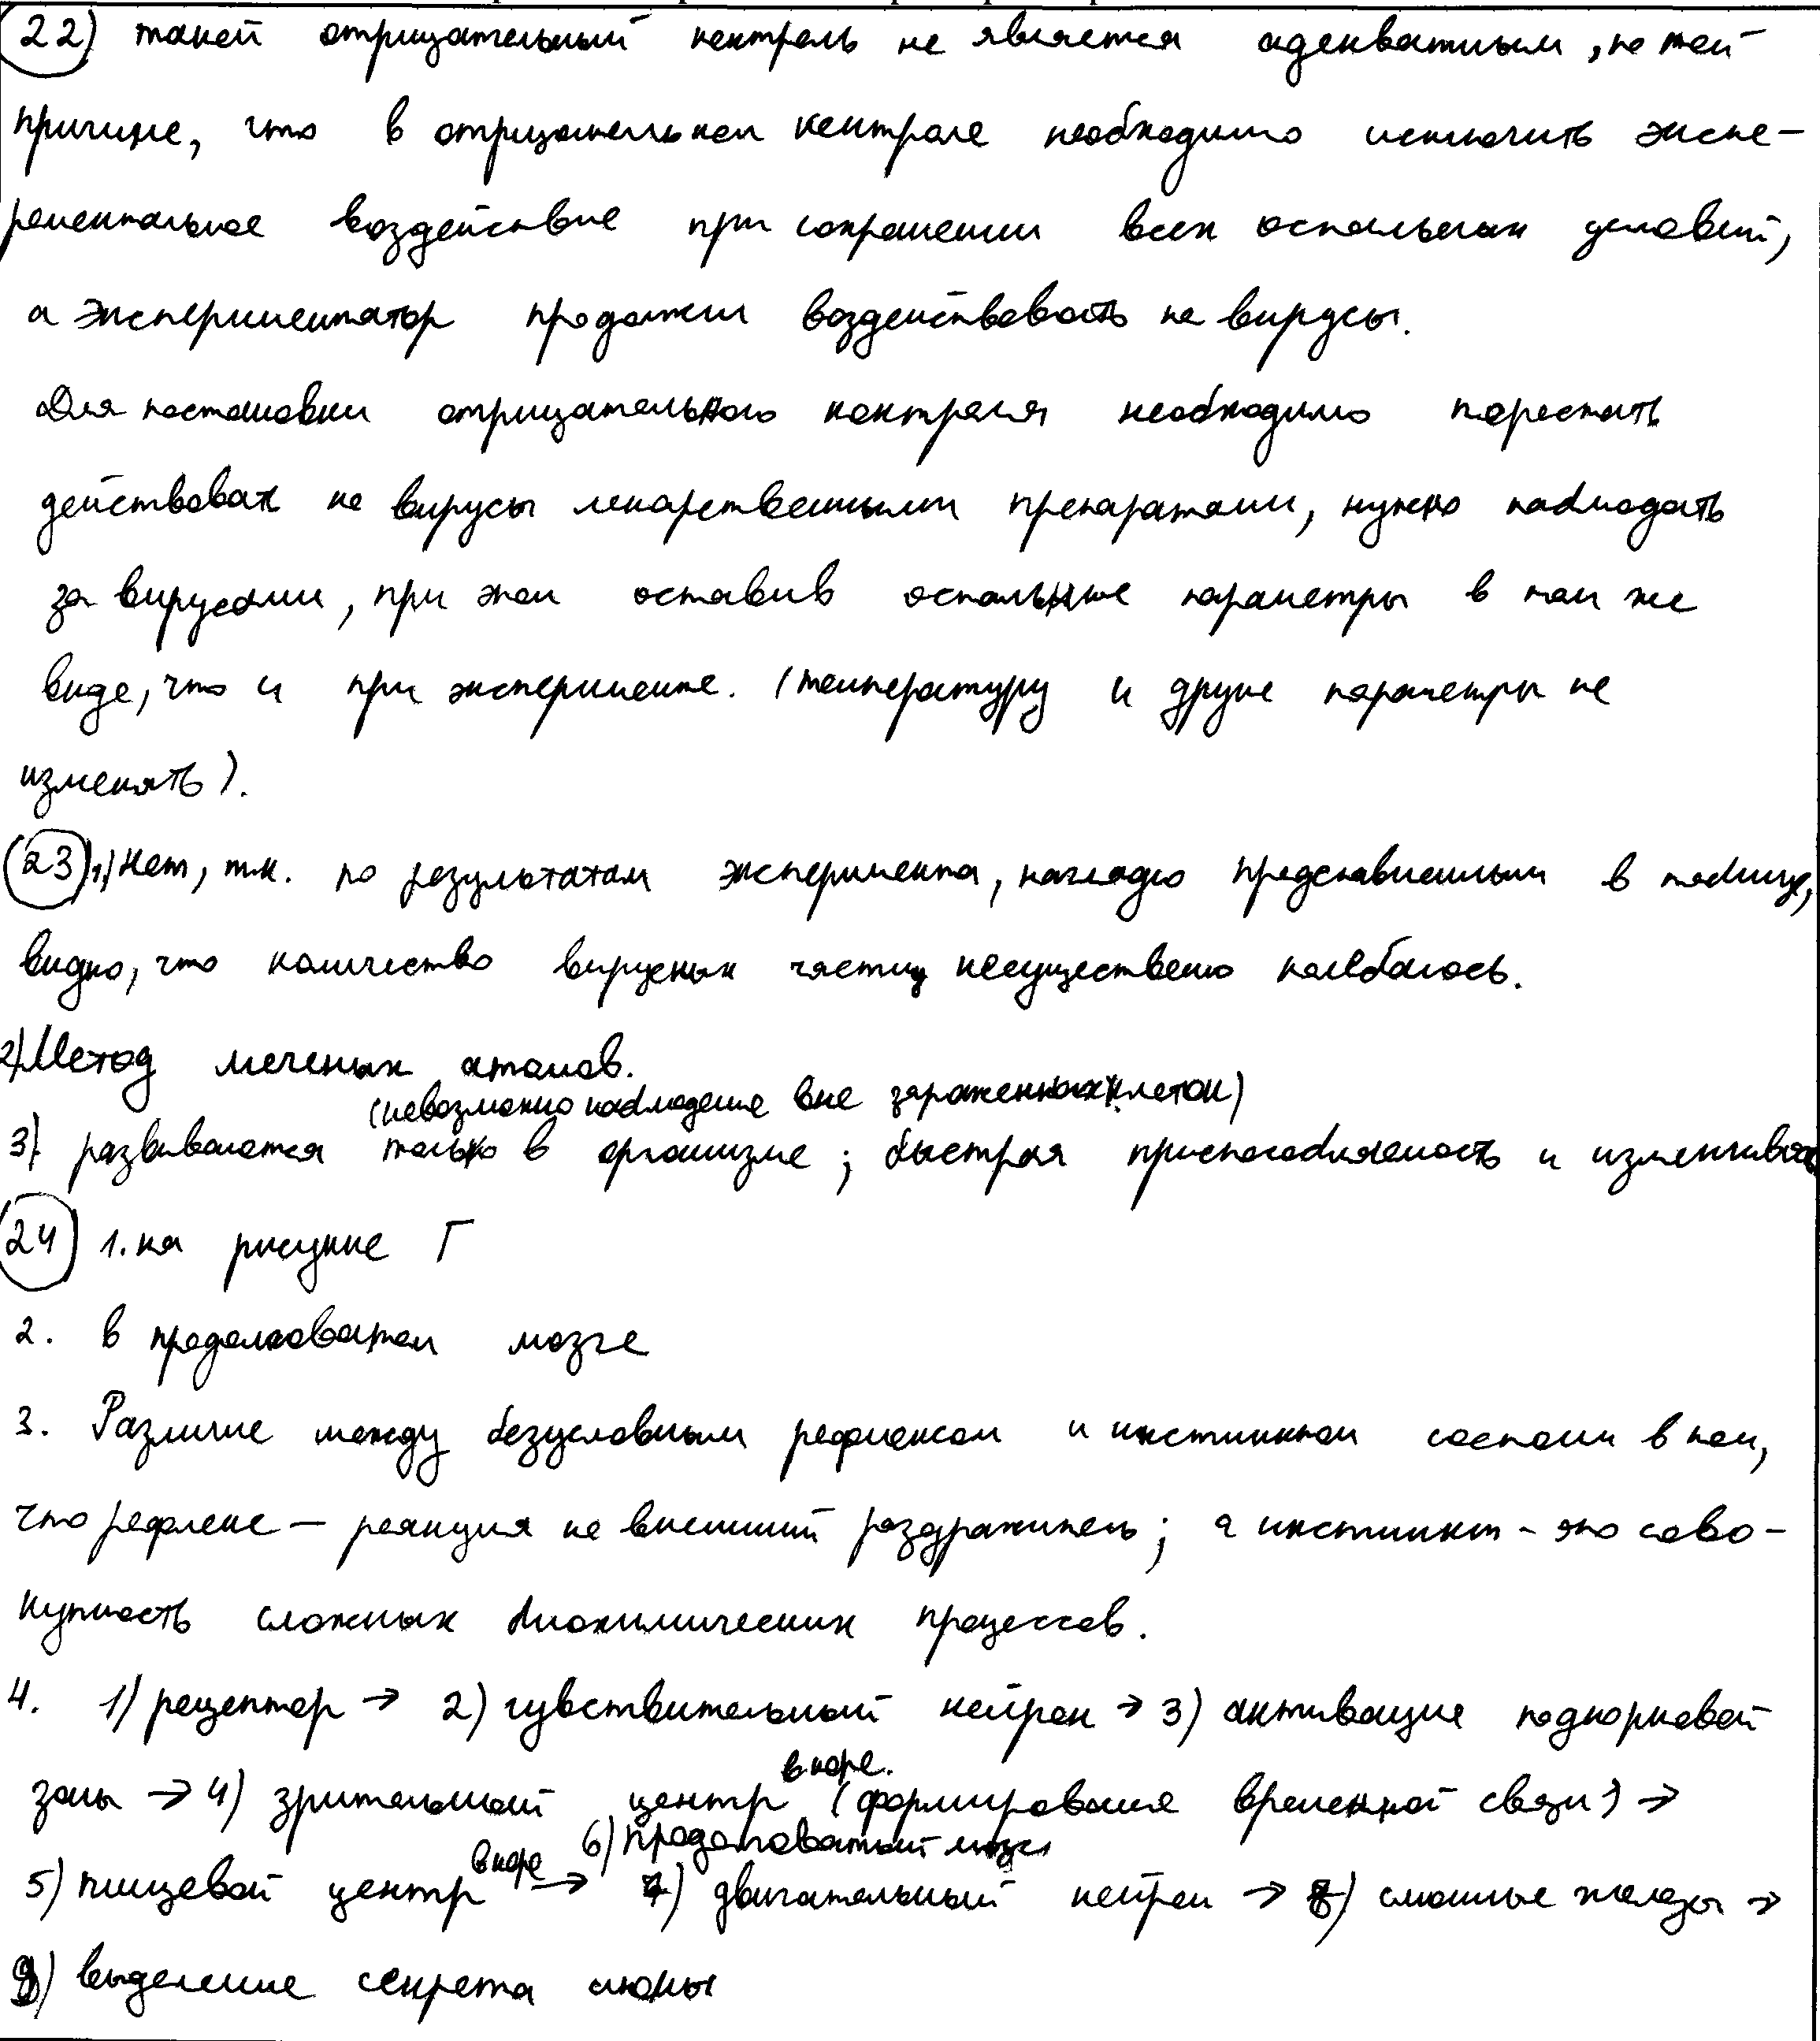 22) такой отрицательный контроль не является адекватным, по той
причине, что в отрицательном контроле необходимо исключить экспе-
рементальное воздействие при сохранении всех остальных условий,
а экспериментатор продолжил воздействовать на вирусы.
Для постановки отрицательного контроля необходимо перестать
действовать на вирусы лекарственными препаратами, нужно наблюдать
за вирусами, при этом оставив остальные параметры в том же
виде, что и при эксперименте. (температуру и другие параметры не
изменять).
23) 1) Нет, т.к. по результатам эксперимента, наглядно представленным в таблице,
видно, что количество вирусных частиц несущественно колебалось.
2) Метод меченых атомов.
(невозможно наблюдение вне зараженных клеток)
3) развиваются только в организме; быстрая приспособляемость и изменчивость
24) 1. на рисунке Г
2. в продолговатом мозге
3. Различие между безусловным рефлексом и инстинктом состоит в том,
что рефлекс — реакция на внешний раздражитель; а инстинкт - это сово-
купность сложных биохимических процессов.
4. 1) рецептор → 2) чувствительный нейрон → 3) активация подкорковой
зоны → 4) зрительный центр в коре. (формирование временной связи) →
5) пищевой центр в коре → 6) продолговатый мозг 7) двигательный нейрон → 8) слюнные железы →
9) выделение секрета слюны